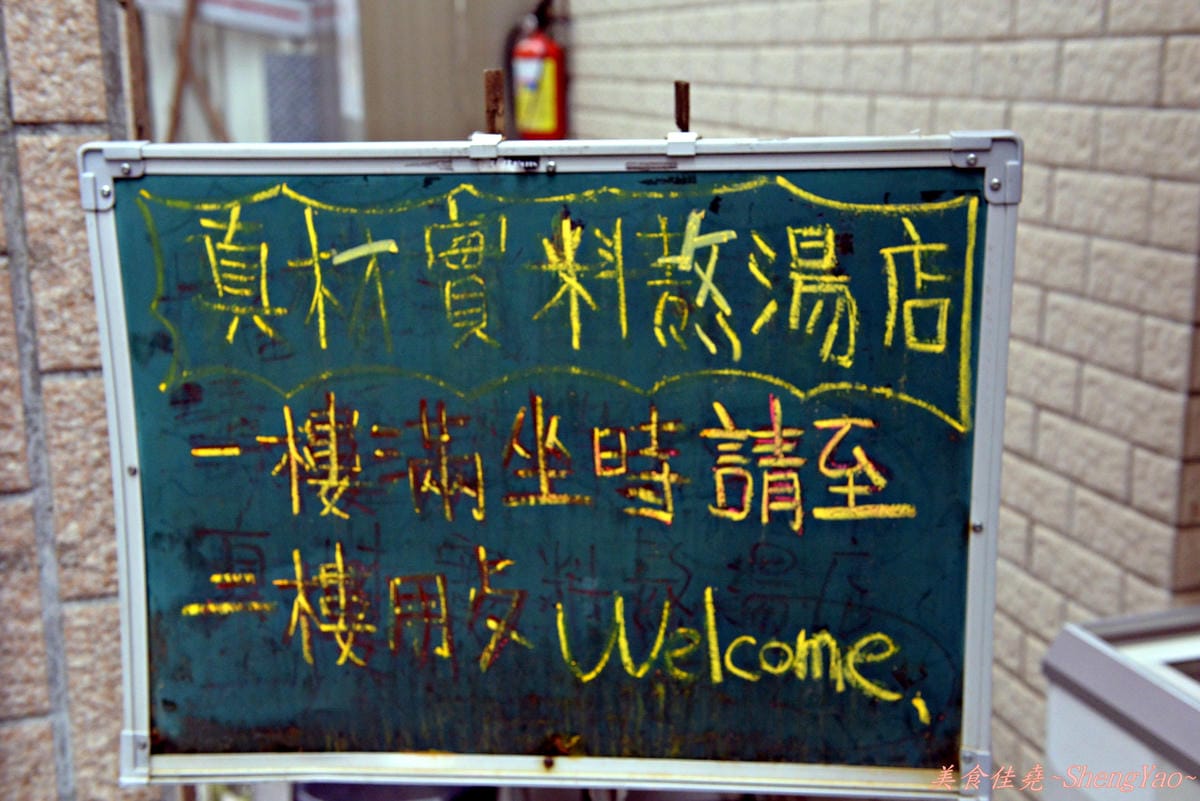 真材實料熬湯店
一樓滿坐時請至
二樓用攴 Welcome,
美食佳堯~ShengYao~